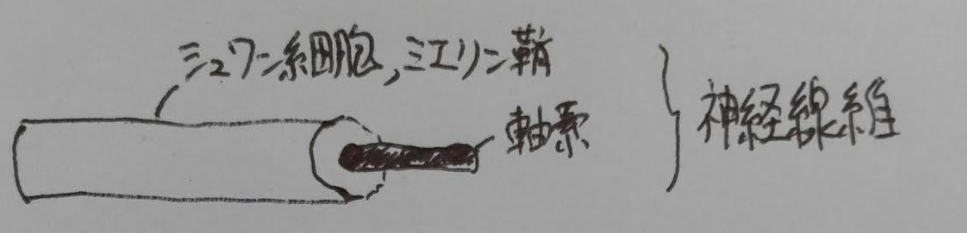 シュワン細胞,ミエリン鞘
軸索
神経線維